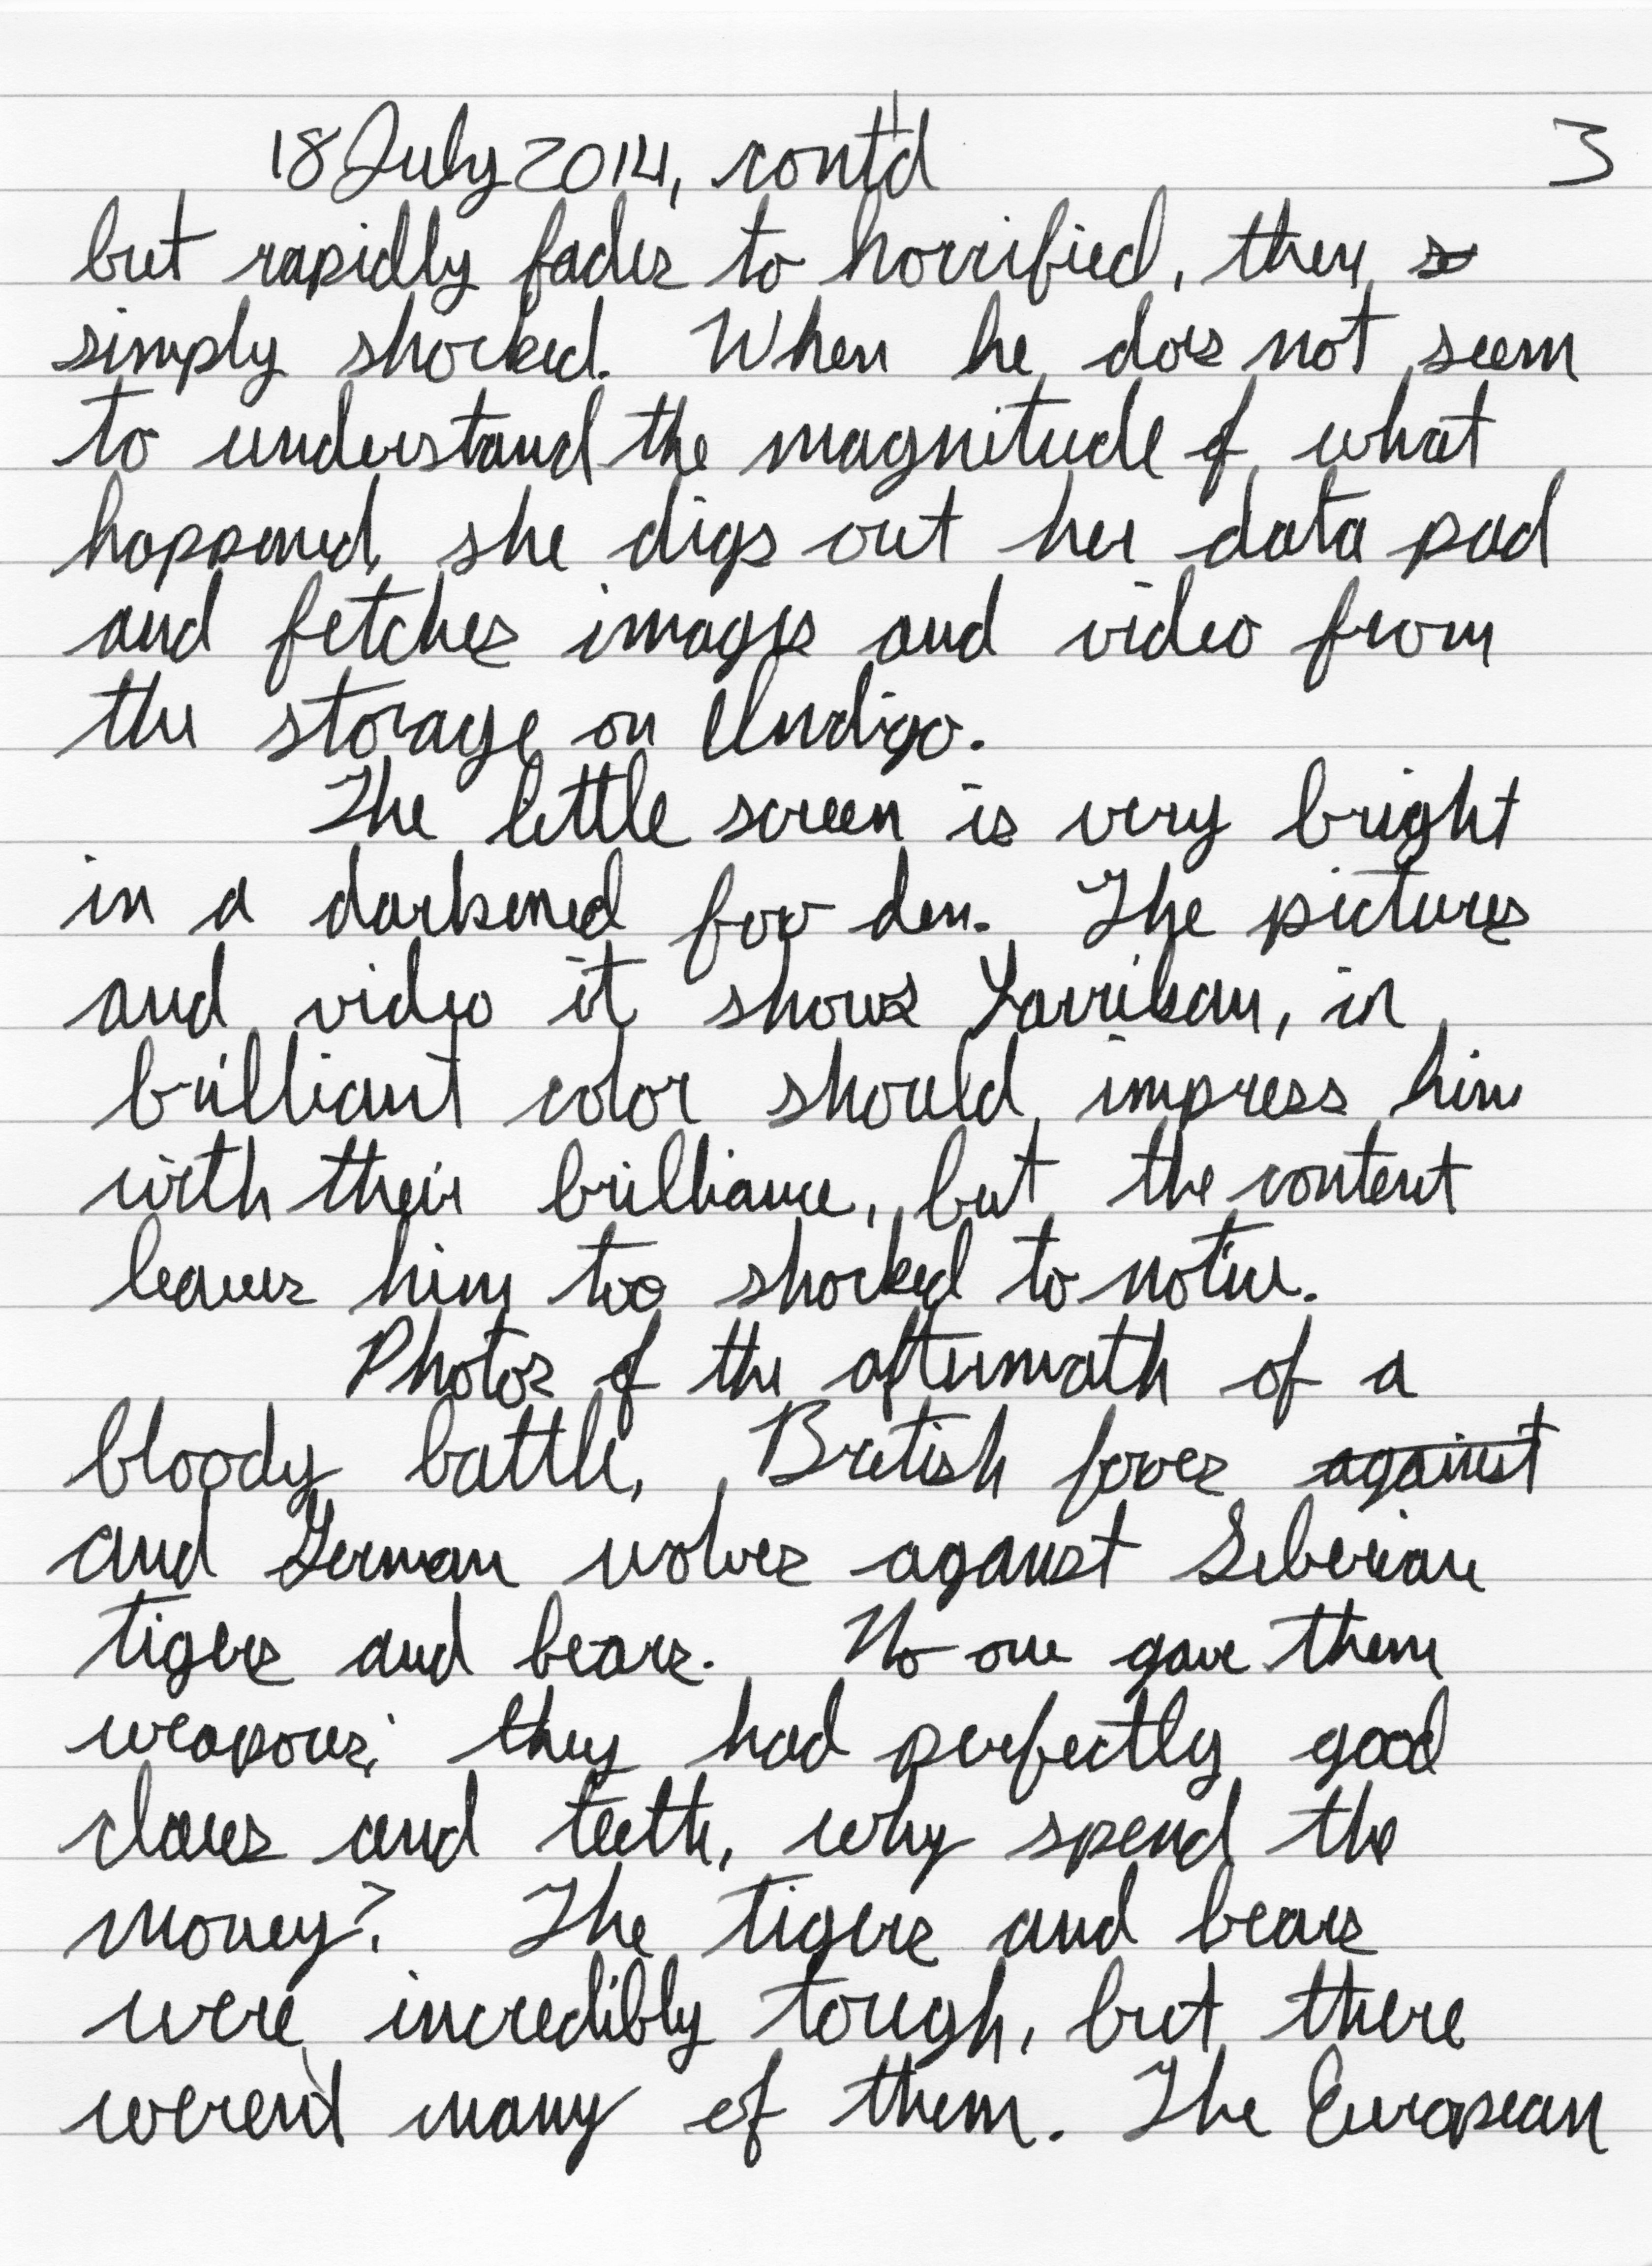 18 July 2014, cont'd 3
but rapidly fades to horrified, then so
simply shocked. When he does not seem
to understand the magnitude of what
happened, she digs out her data pad
and fetches images and video from
the storage on Undigo.
The little screen is very bright
in a darkened fox den. The pictures
and video it shows Larrikan, in
brilliant color should impress him
with their brilliance, but the content
leaves him too shocked to notice.
Photos of the aftermath of a
bloody battle, British foxes against
and German wolves against Siberian
tigers and bears. No one gave them
weapons; they had perfectly good
claws and teeth, why spend the
money? The tigers and bears
were incredibly tough, but there
weren't many of them. The European